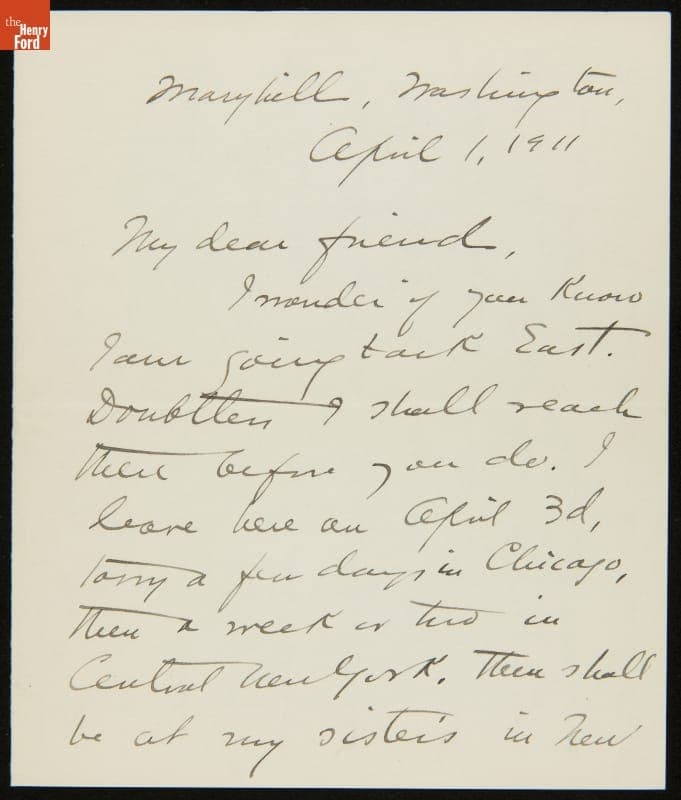 the
Henry
Ford
Maryhill, Washington,
April 1, 1911
My dear friend,
I wonder if you know
I am going back East.
Doubtless I shall reach
there before you do. I
leave here on April 3d,
tarry a few days in Chicago,
then a week or two in
Central New York. Then shall
be at my sister's in New